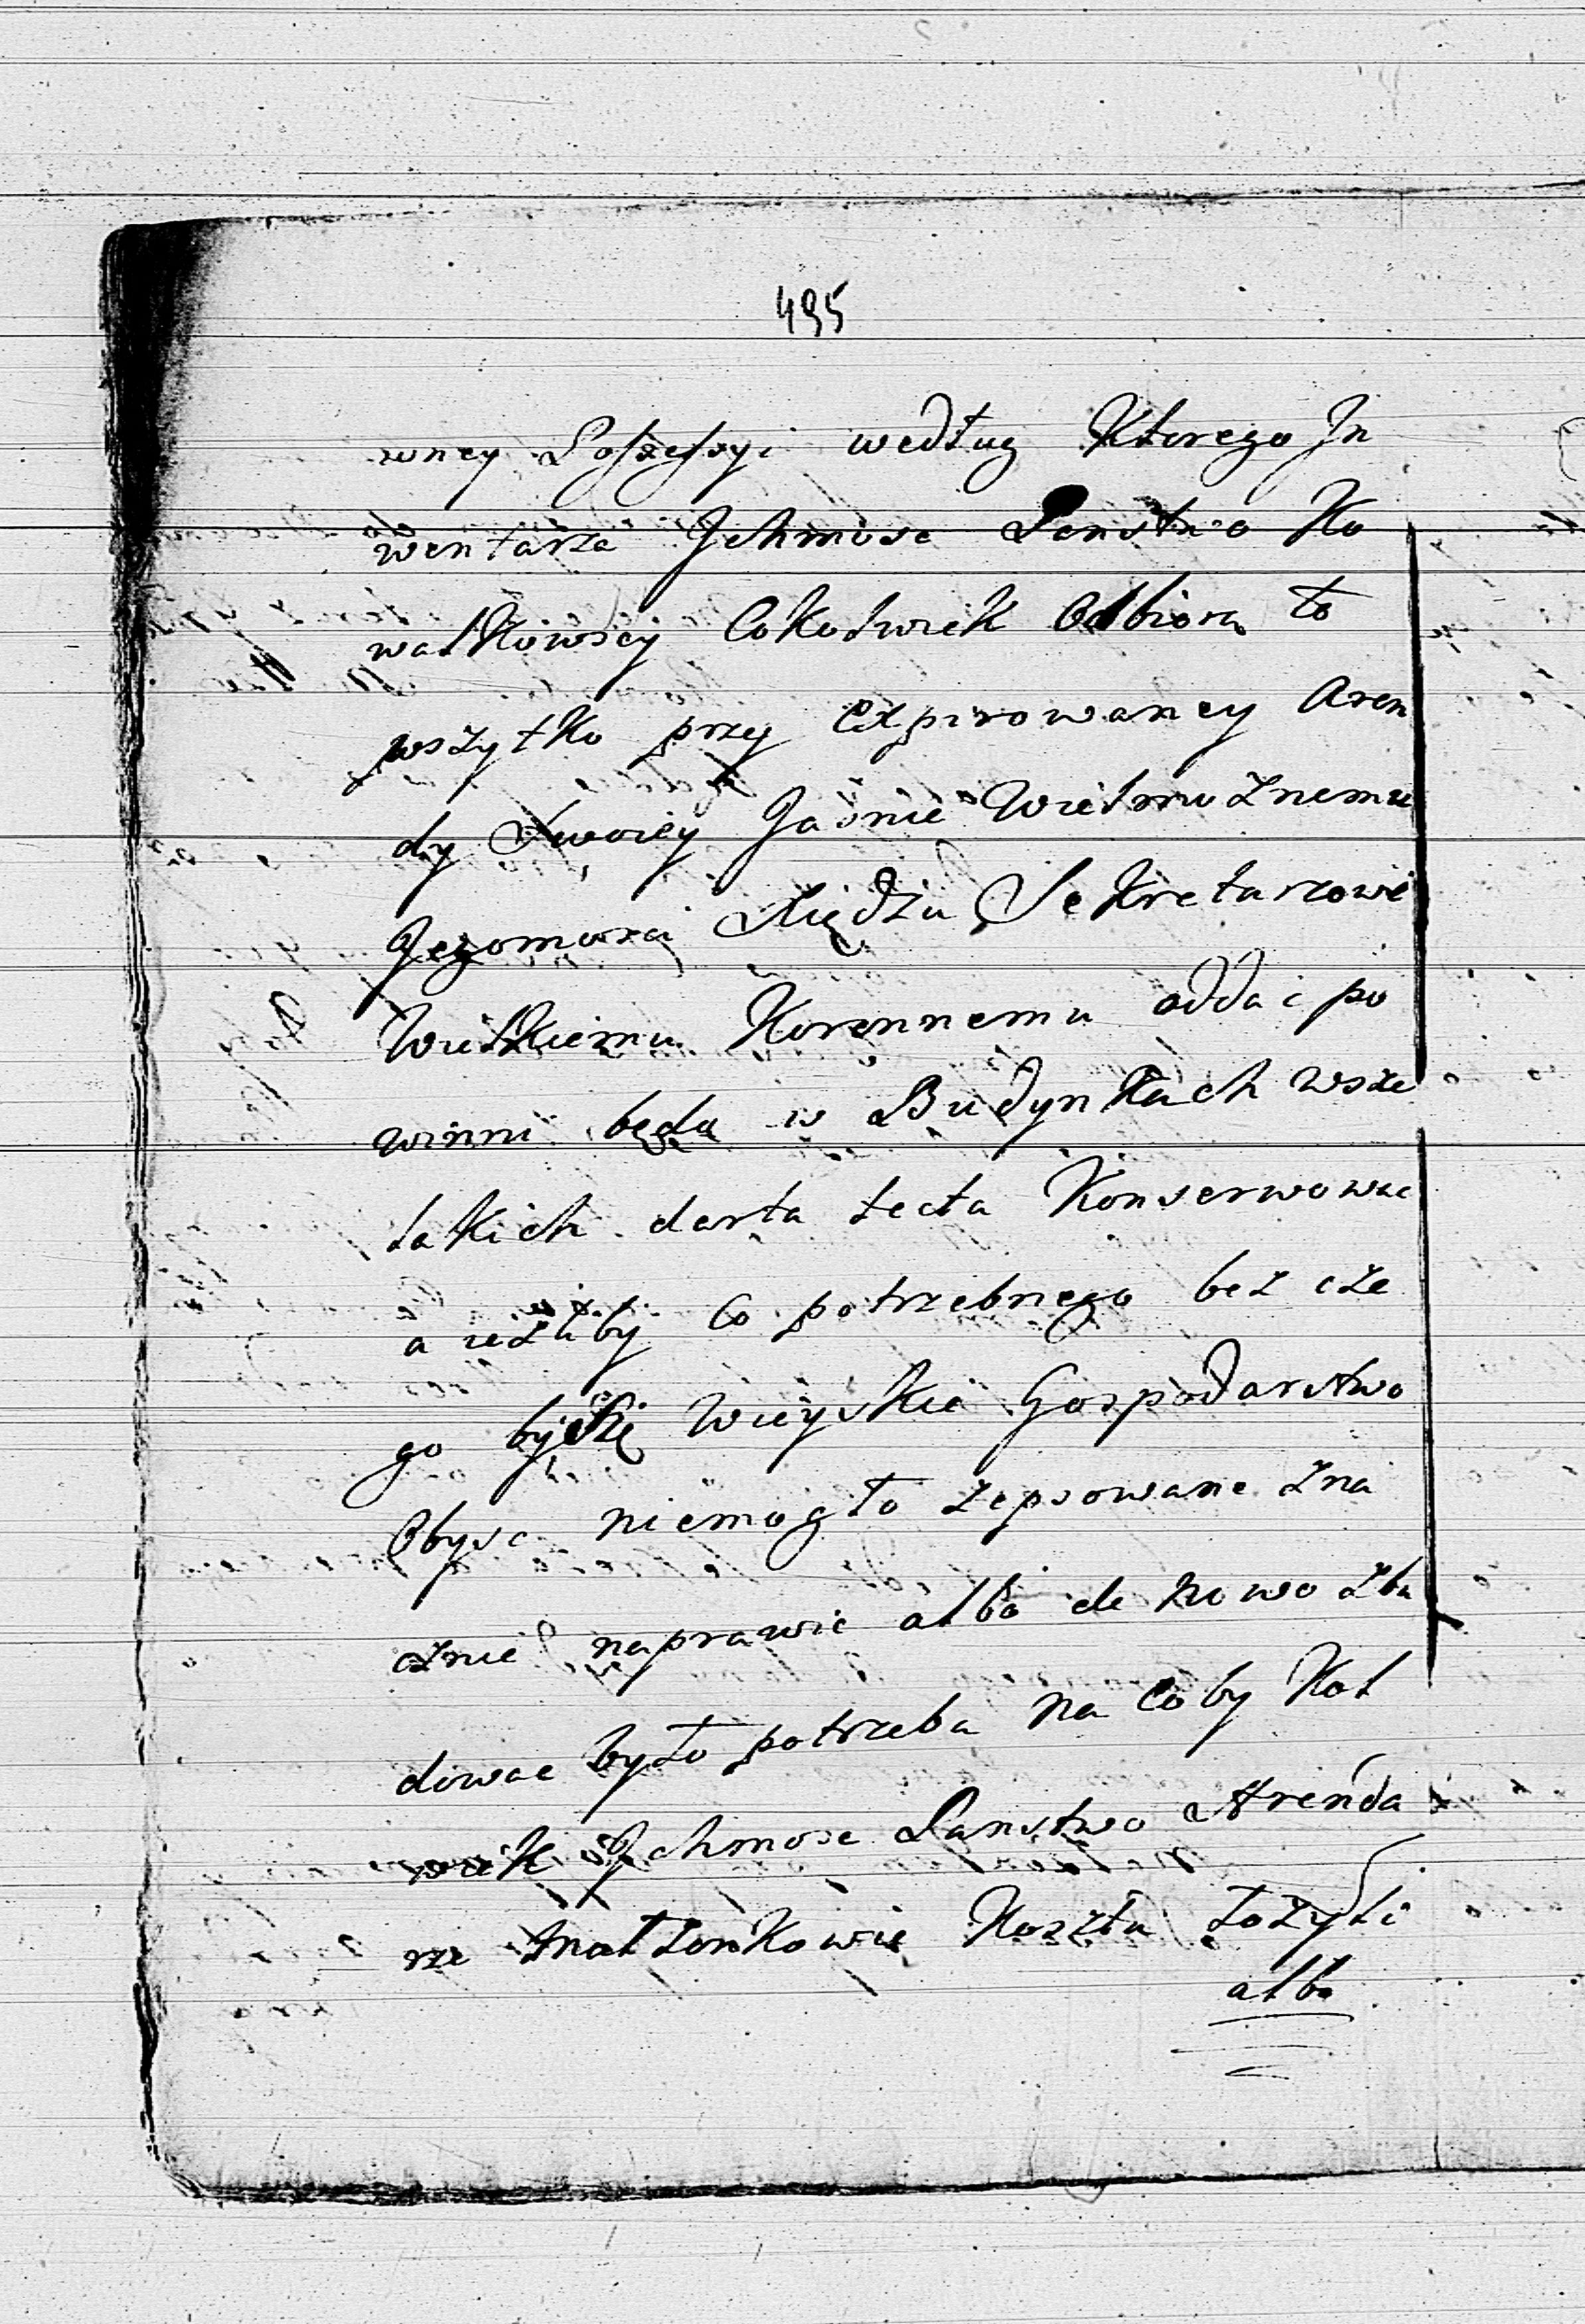 495
wney Possessyi według Ktorego In
wentarza Jchmosc Panstwo Ko
walkowscy Cokolwiek Odbiorą to
wszytko przy Expirowaney Aren
dy Swoiey Jasnie Wielmoznemu
Jegomosci Xiędzu Sekretarzowi
Wielkiemu Koronnemu oddac po
winni będą w Budynkach wsze
lakich darta tecta Konserwowac
a ieżliby Co potrzebnego bez cze
go by się Wieyskie Gospodarstwo
Obysc niemogło zepsowane zna
cznie naprawic albo de Nowo zbu
dowac było potrzeba Na Coby Kol
wiek Jchmosc Panstwo Arenda
rze Małżonkowie Koszta łożyli
albo